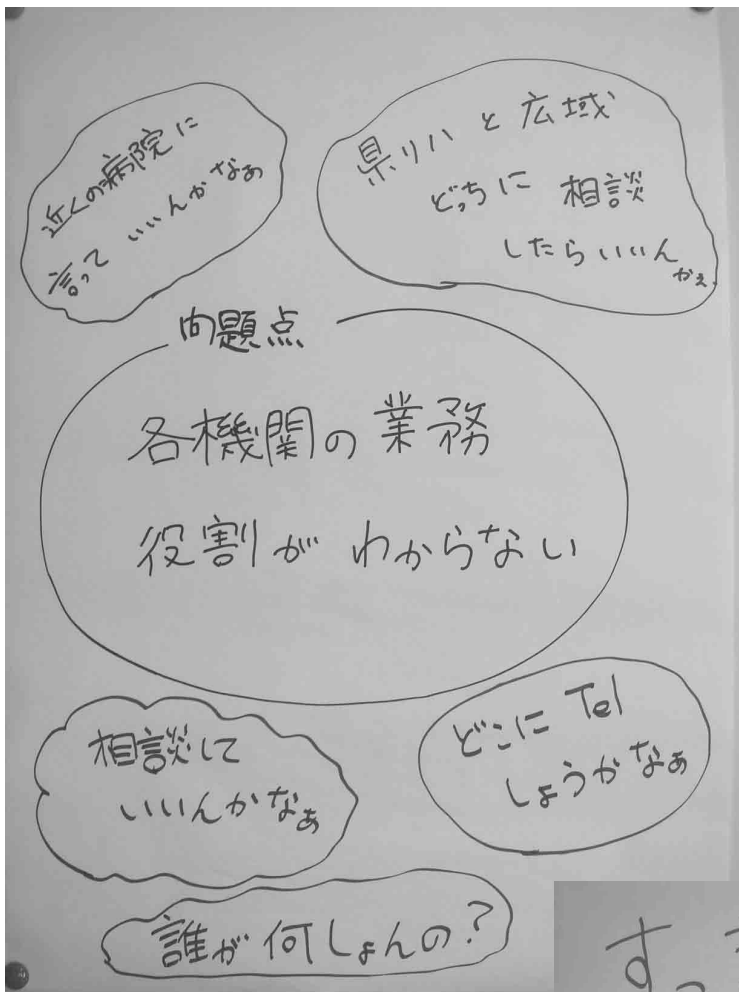 近くの病院に
言って いいんかなぁ
県リハ と 広域
どっちに 相談
したらいいん
かえ.
問題点
各機関の業務
役割が わからない
相談して
いいんかなぁ
どこに Tel
しょうかなぁ
誰が 何しょんの?
すっ